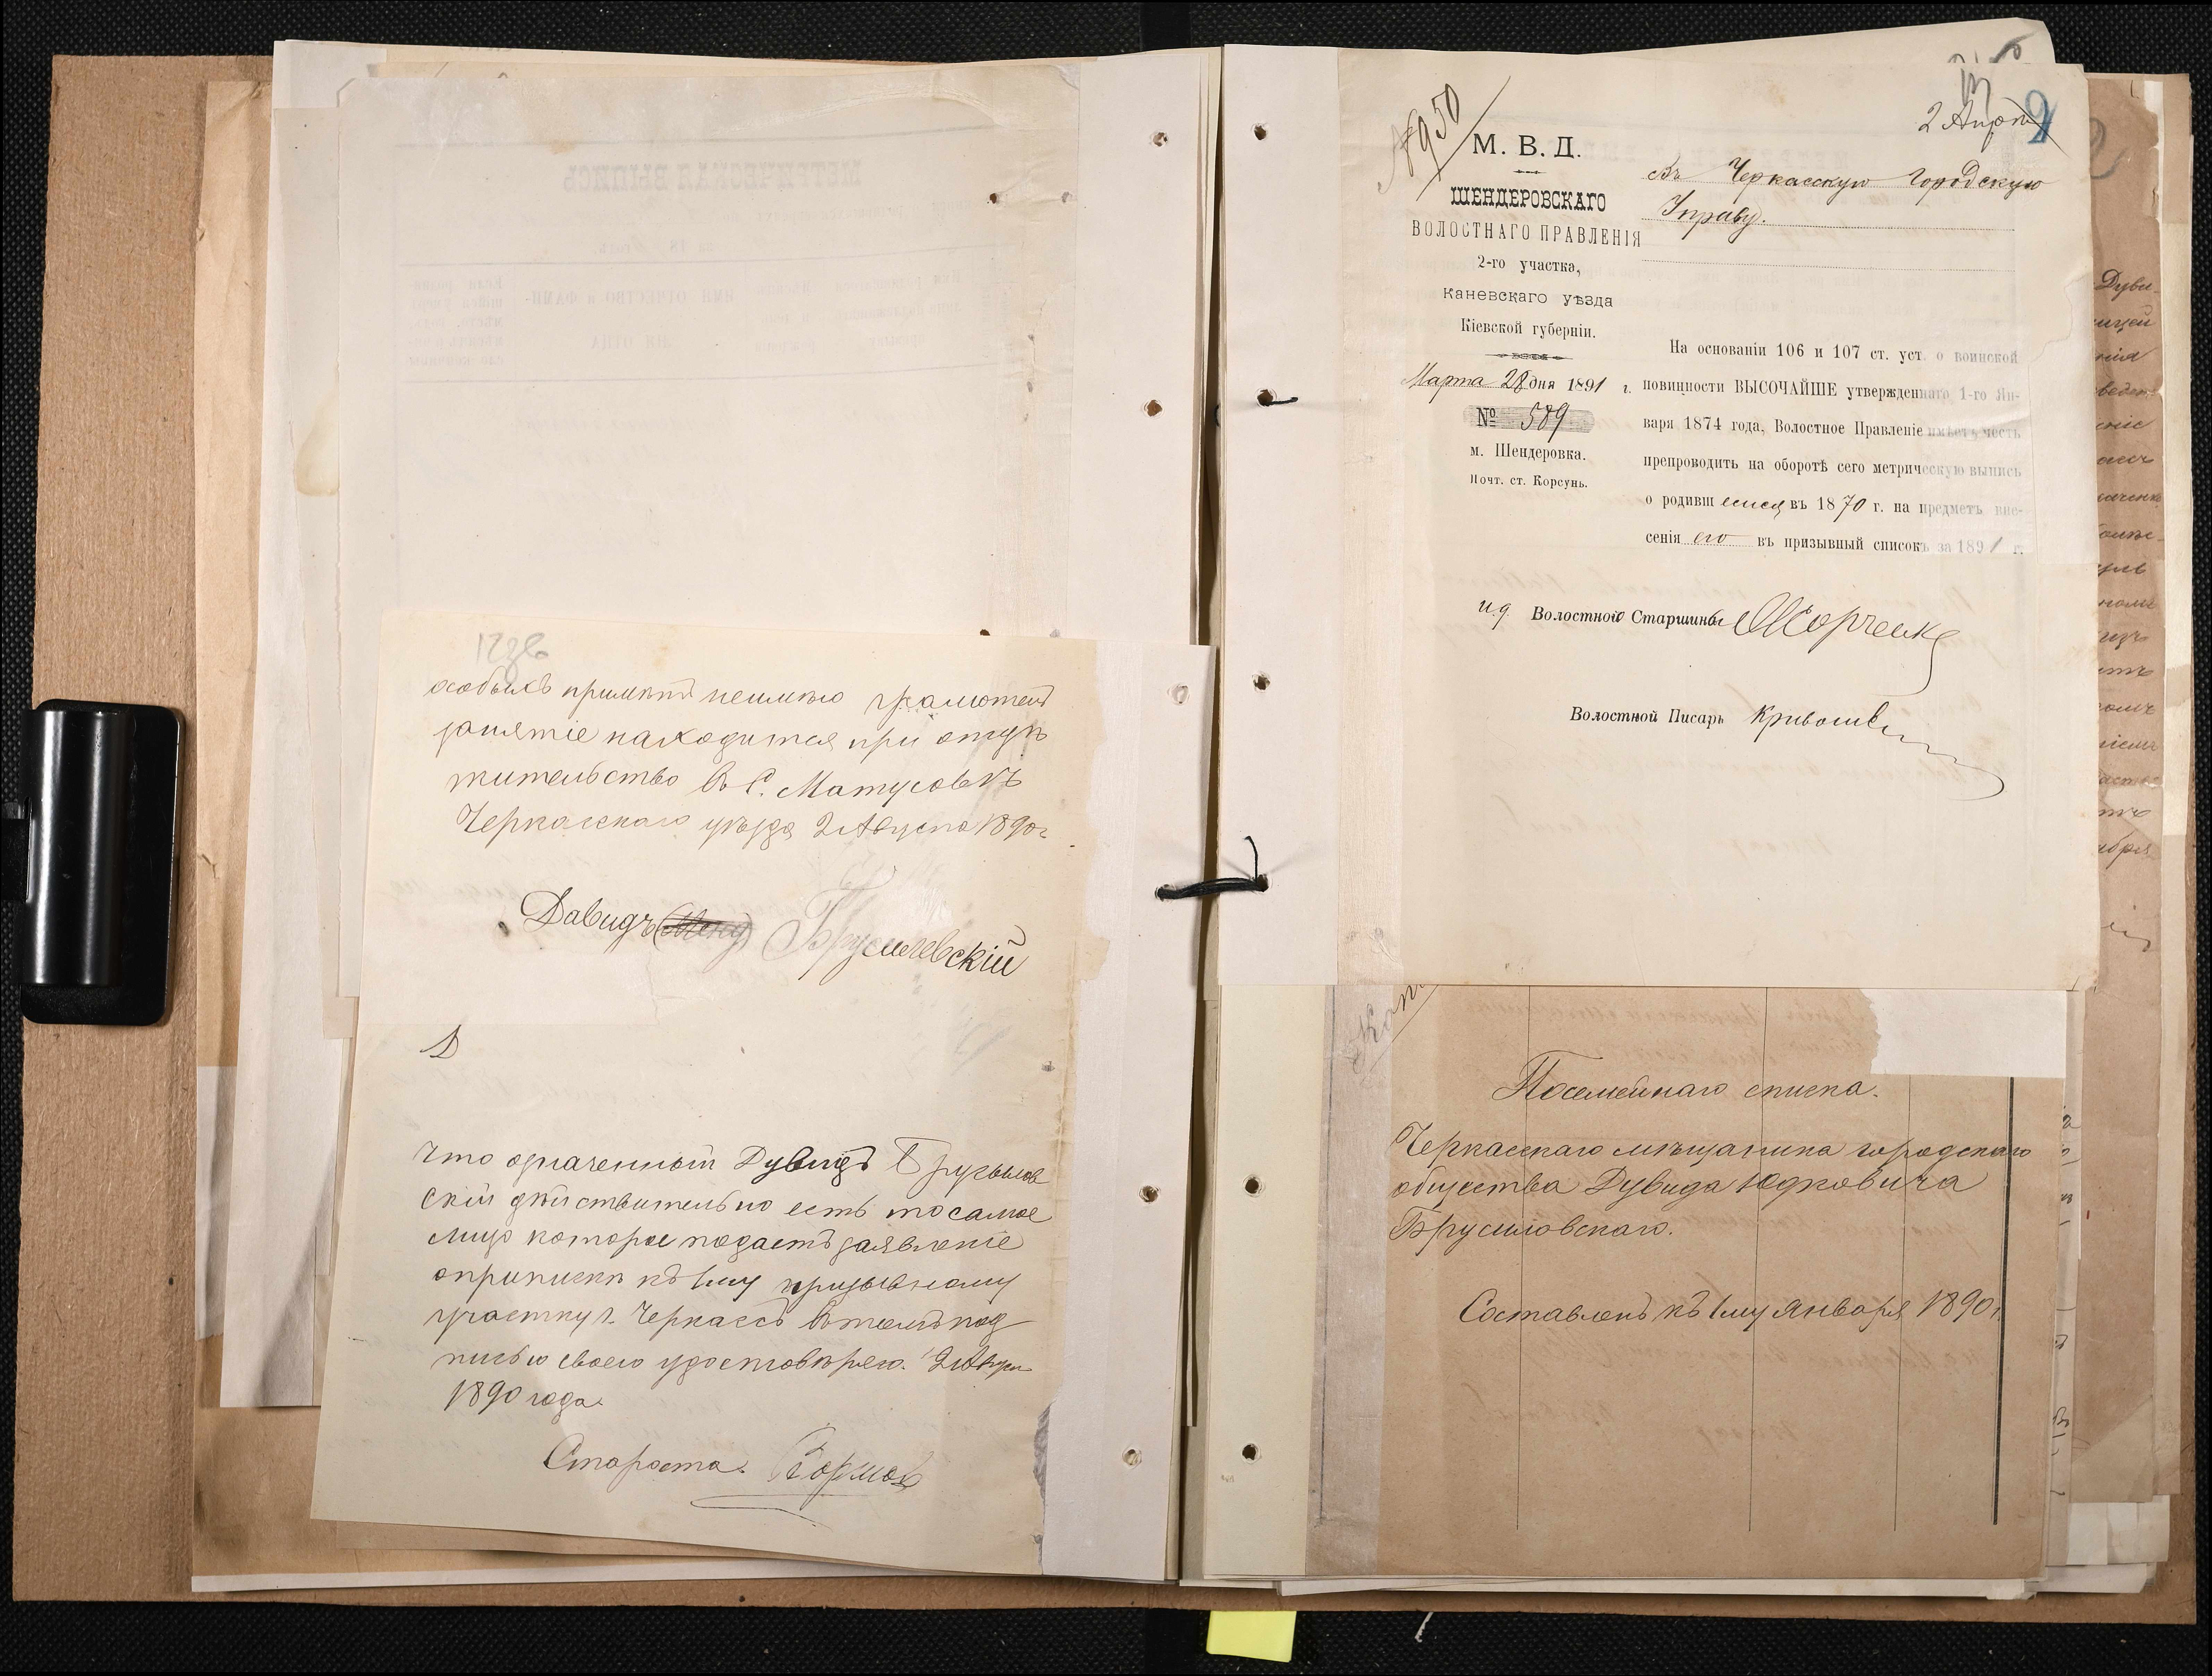 12 зв
особыхъ приметъ неимѣю грамотенъ
занятіе находится при отцѣ
жительство въ С. Матусовкѣ
Черкасскаго уѣзда 2 Августа 1890 г
Давидъ Брусиловскій
Д
Что означенный Дувидъ Брусилов
скій дѣйствительно есть то самое
лицо которое подаетъ заявленіе
о припискѣ къ 1му призывному
участку г. Черкассъ въ томъ под
писью своею удостовѣряю. 2 Августа
1890 года.
Староста.
№ 950
2 Апрѣля
2
М. В. Д.
ШЕНДЕРОВСКАГО
ВОЛОСТНАГО ПРАВЛЕНІЯ
2-го участка,
Каневскаго уѣзда
Кіевской губерніи.
Марта 28 дня 1891 г.
№ 589
м. Шендеровка.
Почт. ст. Корсунь.
Въ Черкасскую Городскую
Управу.
На основаніи 106 и 107 ст. уст. о воинской
повинности ВЫСОЧАЙШЕ утвержденнаго 1-го Ян-
варя 1874 года, Волостное Правленіе имѣетъ честь
препроводить на оборотѣ сего метрическую выпись
о родивш емся въ 1870 г. на предметъ вне-
сенія его въ призывный списокъ за 1891 г.
и.д. Волостного Старшины
Волостной Писарь
Посемейнаго списка.
Черкасскаго мѣщанина городскаго
общества Дувида Юдковича
Брусиловскаго.
Составленъ къ 1му января 1890 г.